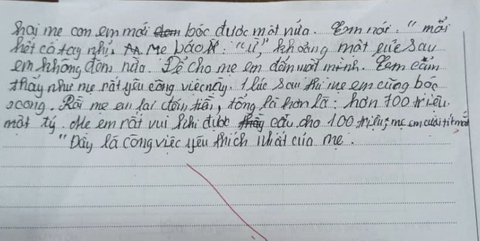 hai mẹ con em mới bóc được một nửa. Em nói: "mỏi
hết cả tay nhỉ. Mẹ bảo: "ừ" khoảng một lúc sau
em không đếm nữa. Để cho mẹ em đếm một mình. Em cảm
thấy như mẹ rất yêu công việc này. 1 lúc sau thì mẹ em cũng bóc
xong. Rồi mẹ em lại đếm tiền, tổng là hơn là: hơn 700 triệu
một tỷ. Mẹ em rất vui khi được cầu cho 100 triệu, mẹ em cười tít mắt
"Đây là công việc yêu thích nhất của mẹ.